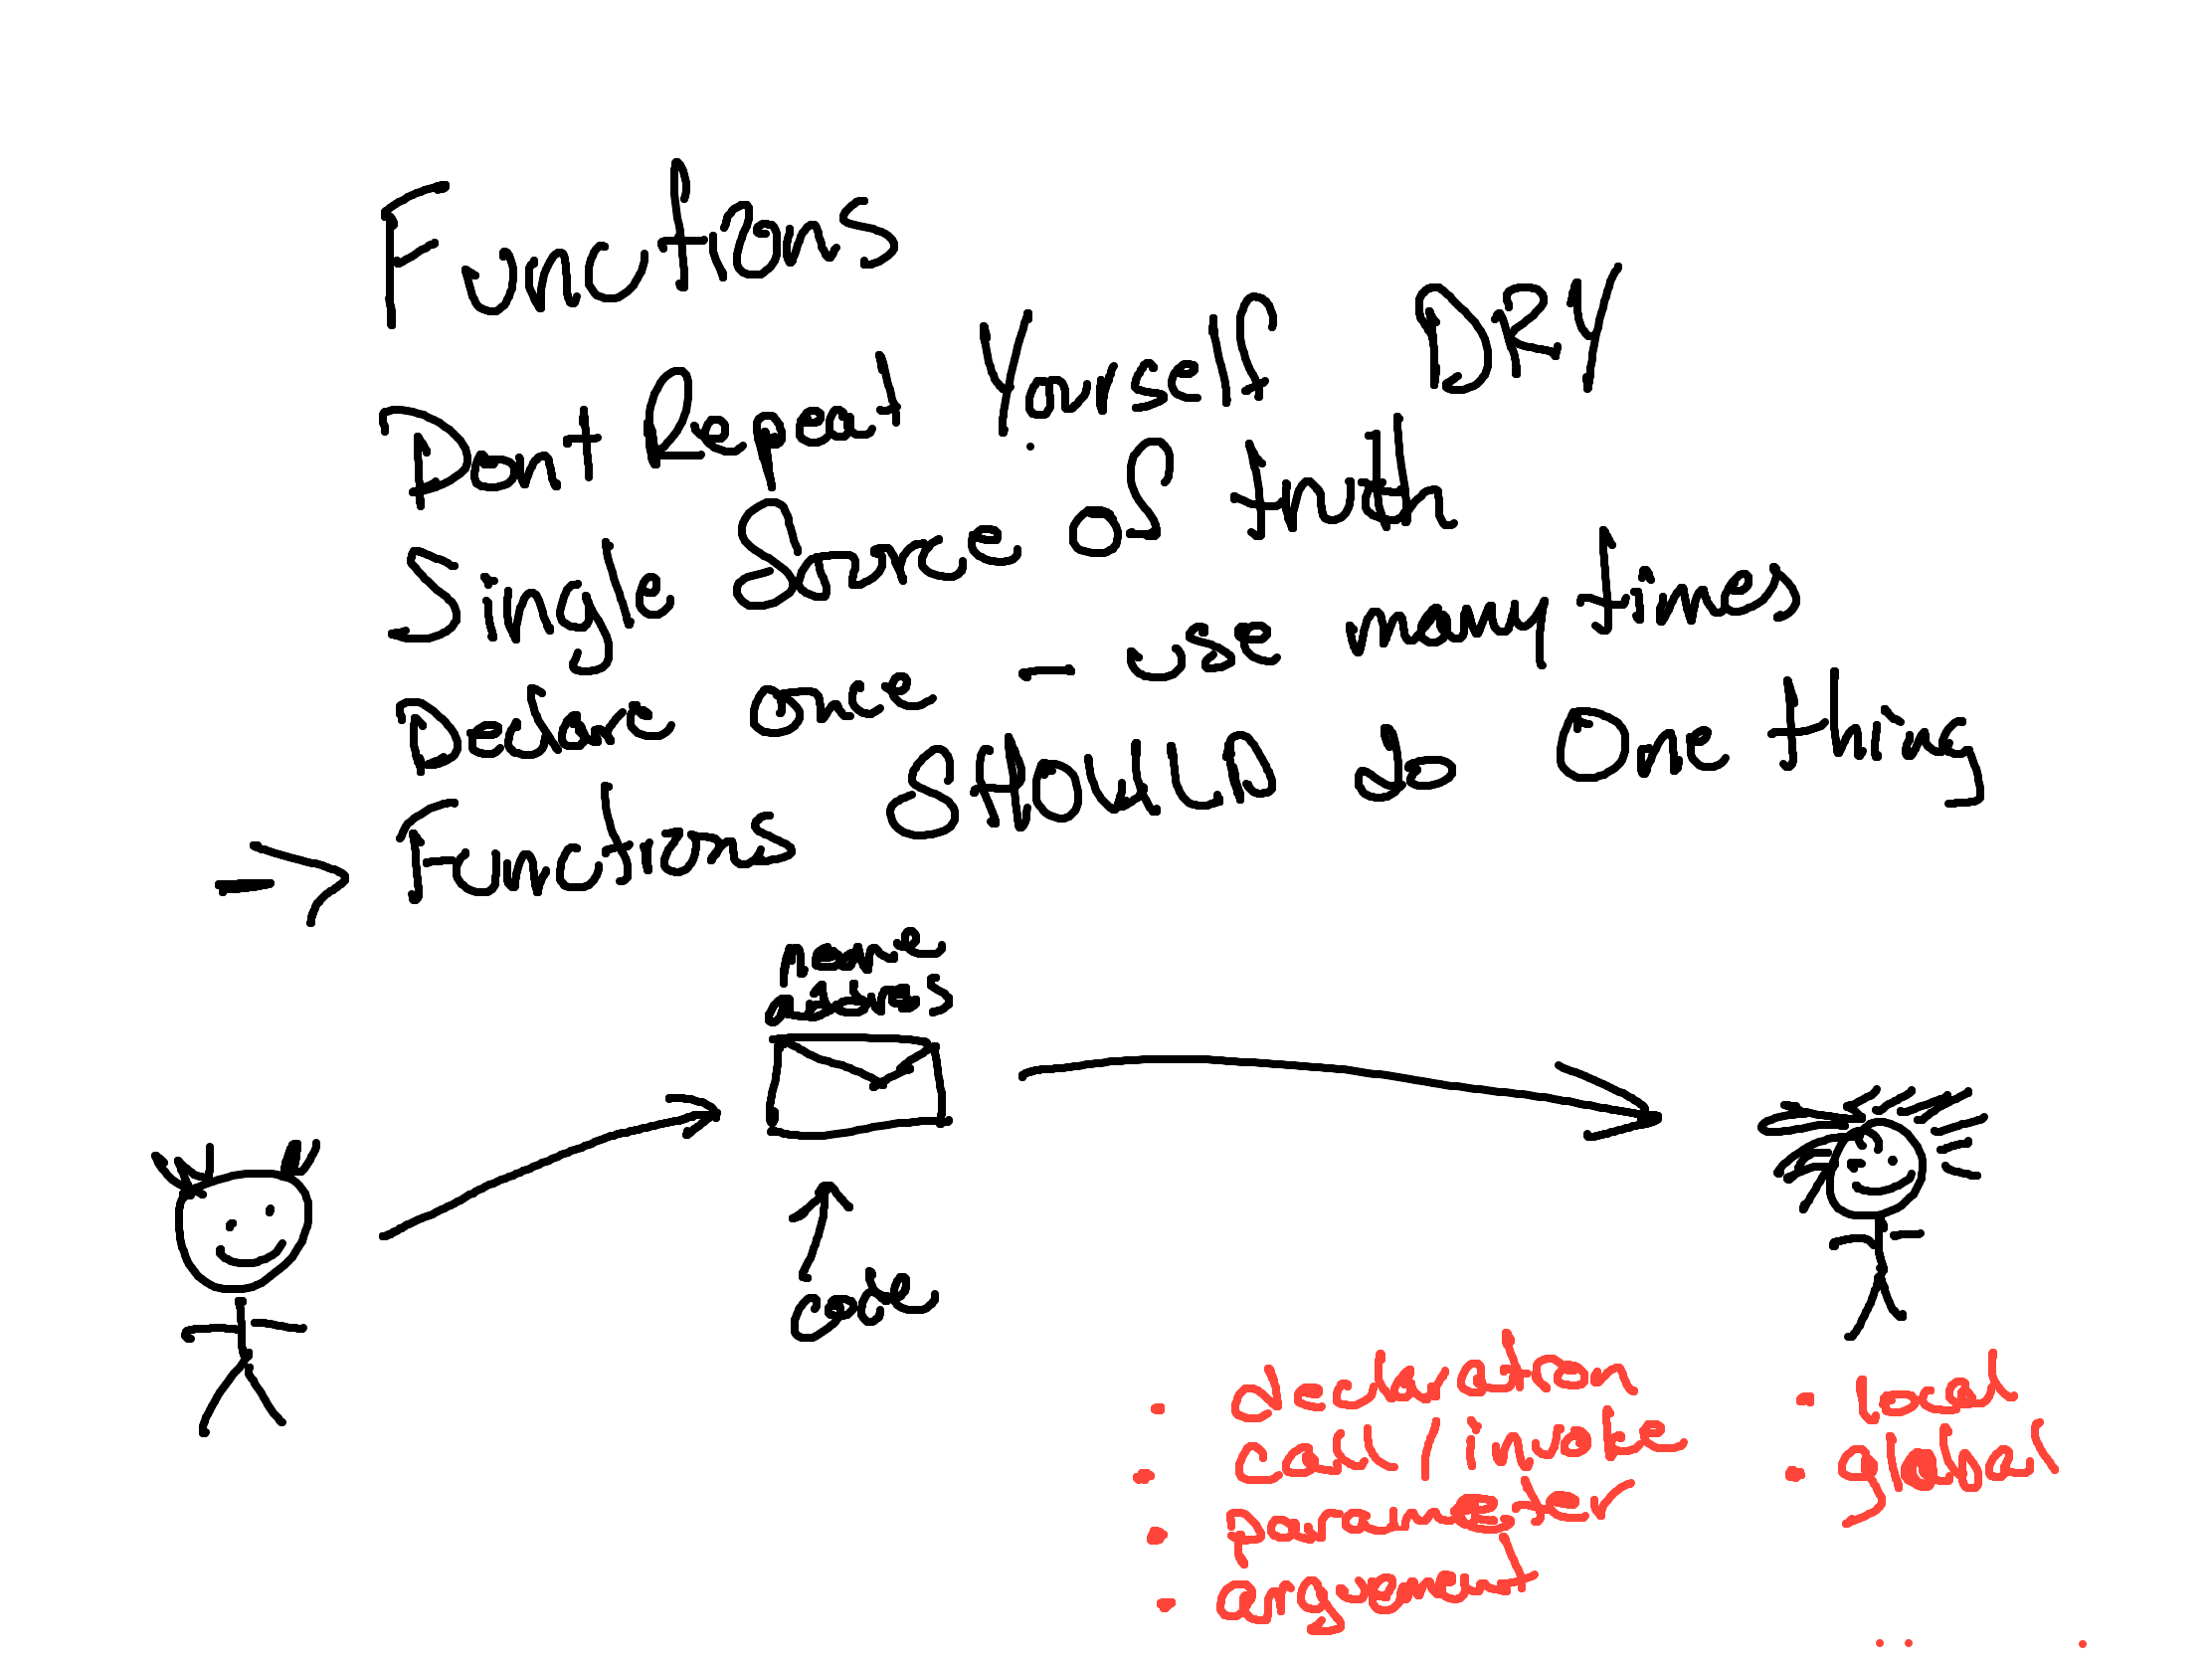 Functions
Dont Repeat Yourself DRY
Single Source of truth
Declare once - use many times
-> Functions SHOULD do One thing
name
address
code
· declaration
· call / invoke
· parameter
· argument
· local
· global